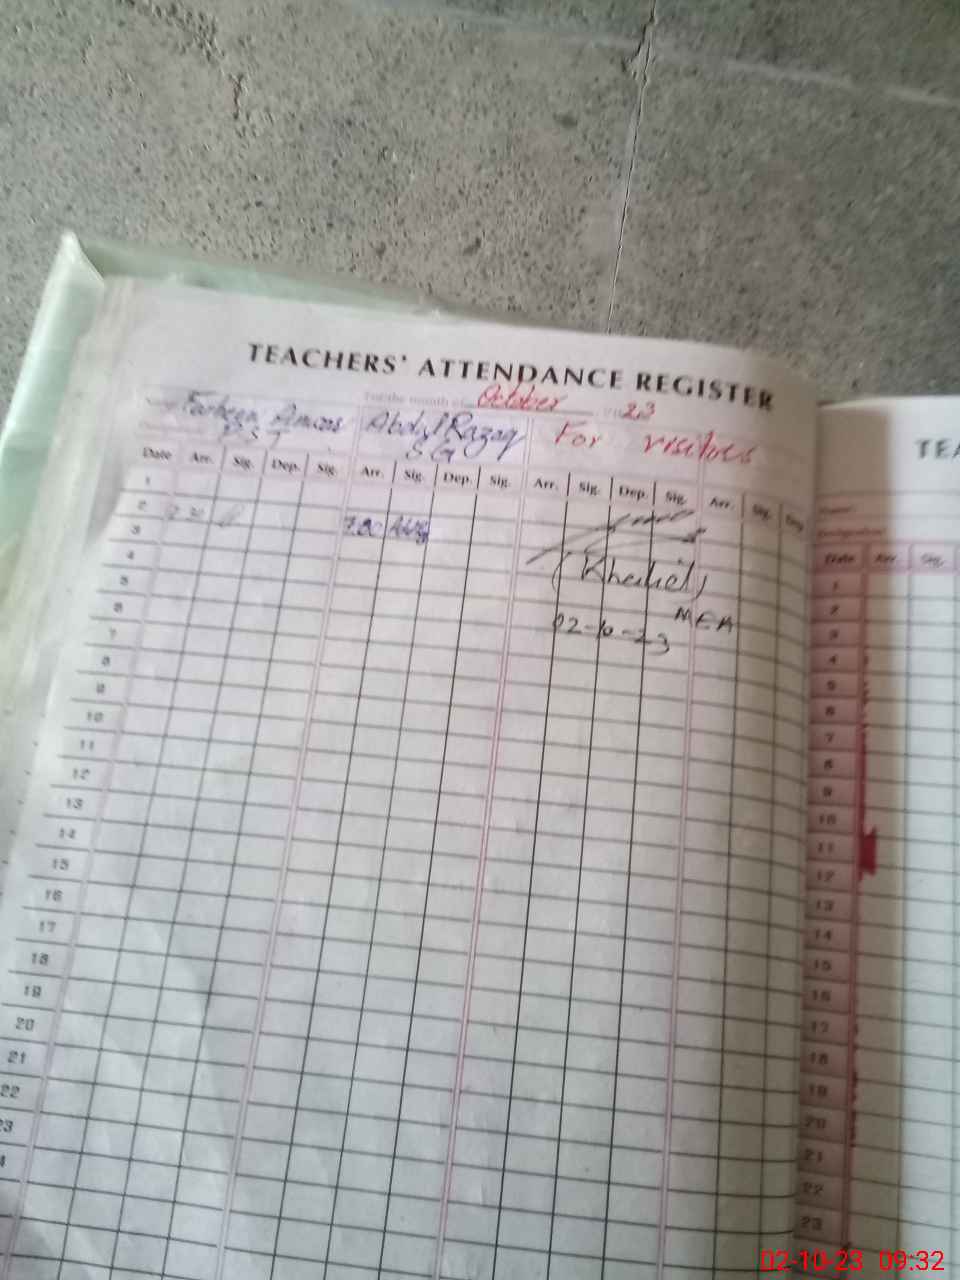 TEACHERS' ATTENDANCE REGISTER
For the month of October 23
Abdul Razaq For visitors
Date Arr. Sig. Dep. Sig. Arr. Sig. Dep. Sig. Arr. Sig. Dep. Sig. Arr. Sig. Dep
1
2 7.30 7.30
3
4
5
6
7
8
9
10
11
12
13
14
15
16
17
18
19
20
21
22
23
(Khalid)
MEA
02-10-23
TEA
Date Arr. Sig.
1
2
3
4
5
6
7
8
9
10
11
12
13
14
15
16
17
18
19
20
21
22
23
02-10-23 09:32